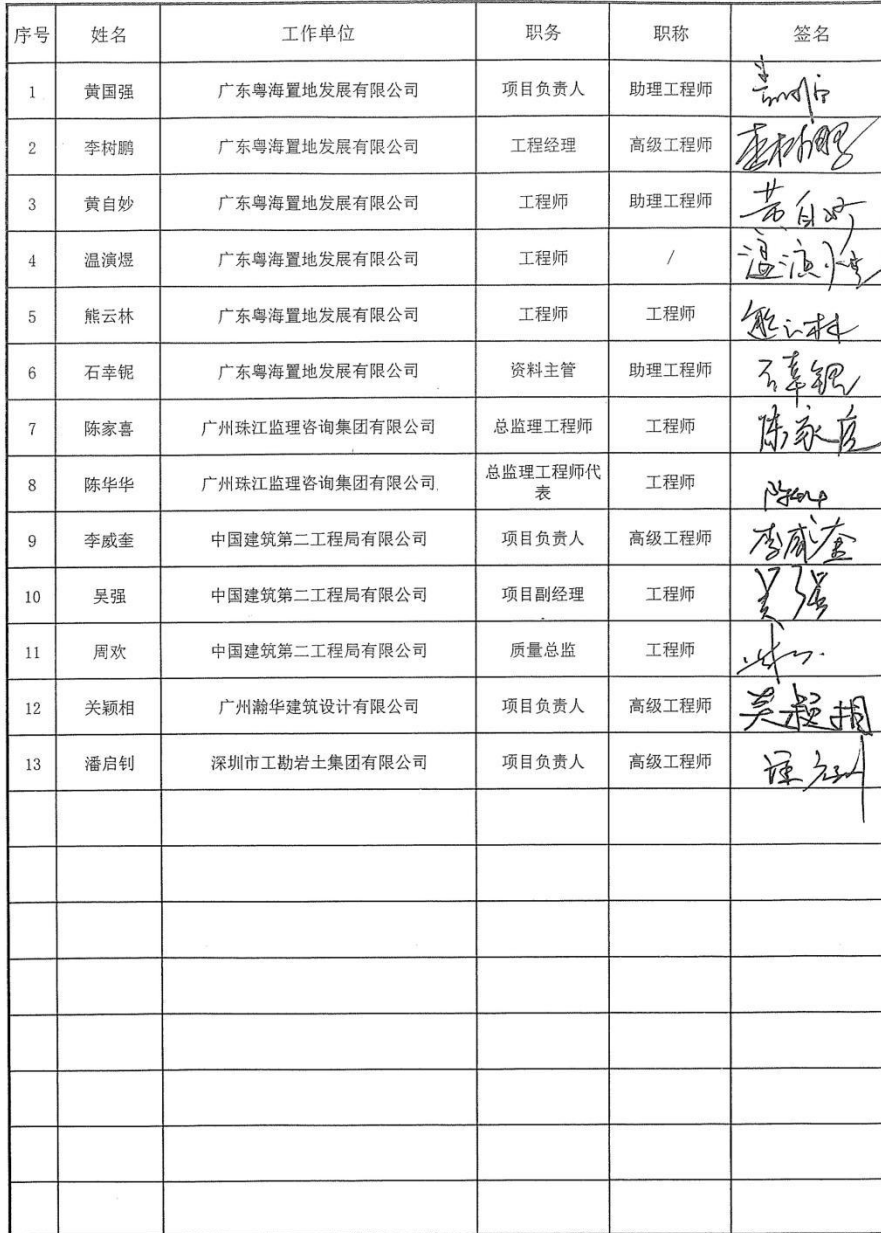 序号 姓名 工作单位 职务 职称 签名
1 黄国强 广东粤海置地发展有限公司 项目负责人 助理工程师
2 李树鹏 广东粤海置地发展有限公司 工程经理 高级工程师 李树鹏
3 黄自妙 广东粤海置地发展有限公司 工程师 助理工程师 黄自妙
4 温演煜 广东粤海置地发展有限公司 工程师 / 温演煜
5 熊云林 广东粤海置地发展有限公司 工程师 工程师 熊云林
6 石幸铌 广东粤海置地发展有限公司 资料主管 助理工程师 石幸铌
7 陈家喜 广州珠江监理咨询集团有限公司 总监理工程师 工程师 陈家喜
8 陈华华 广州珠江监理咨询集团有限公司 总监理工程师代表 工程师
9 李威奎 中国建筑第二工程局有限公司 项目负责人 高级工程师 李威奎
10 吴强 中国建筑第二工程局有限公司 项目副经理 工程师 吴强
11 周欢 中国建筑第二工程局有限公司 质量总监 工程师
12 关颖相 广州瀚华建筑设计有限公司 项目负责人 高级工程师 关颖相
13 潘启钊 深圳市工勘岩土集团有限公司 项目负责人 高级工程师